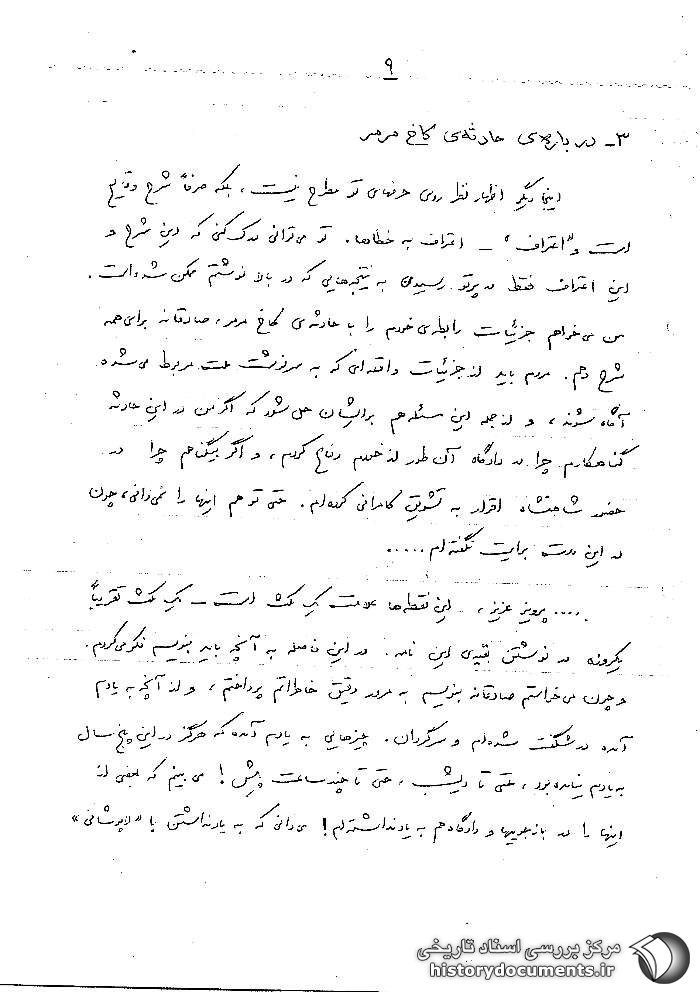 ۹
۳- درباره‌ی حادثه‌ی کاخ مرمر
اینجا دیگر اظهار نظر روی حرفهای تو مطرح نیست، بلکه صرفاً شرح وقایع
است و «اعتراف» – اعتراف به خطاها. تو می‌توانی درک کنی که این شرح و
این اعتراف فقط در پرتو رسیدن به نتیجه‌هایی که در بالا نوشتم ممکن شده‌است.
من می‌خواهم جزئیات رابطه‌ی خودم را با حادثه‌ی کاخ مرمر، صادقانه برای همه
شرح دهم. مردم باید از جزئیات واقعه‌ای که به سرنوشت ملت مربوط می‌شده
آگاه شوند، و از جمله این مسئله هم برایشان حل شود که اگر من در این حادثه
گناهکارم چرا در دادگاه آن طور از خودم دفاع کردم، و اگر بیگناهم چرا در
حضور شاهنشاه اقرار به تشویق کامرانی کرده‌ام. حتی تو هم اینها را نمی‌دانی، چون
در این مدت برایت نگفته‌ام.....
.... پرویز عزیز، این نقطه‌ها علامت یک مکث است – یک مکث تقریباً
یکروزه در نوشتن بقیه‌ی این نامه. در این فاصله به آنچه باید بنویسم فکر می‌کردم.
و چون می‌خواستم صادقانه بنویسم به مرور دقیق خاطراتم پرداختم، و از آنچه به یادم
آمده در شگفت شده‌ام و سرگردان. چیزهایی به یادم آمده که هرگز در این پنج سال
به یادم نیامده بود، حتی تا دیشب، حتی تا چند ساعت پیش! می بینم که بعضی از
اینها را در بازجوییها و دادگاه هم به یاد نداشته‌ام! می‌دانی که به یاد نداشتن با «لاپوشانی»
مرکز بررسی اسناد تاریخی
historydocuments.ir